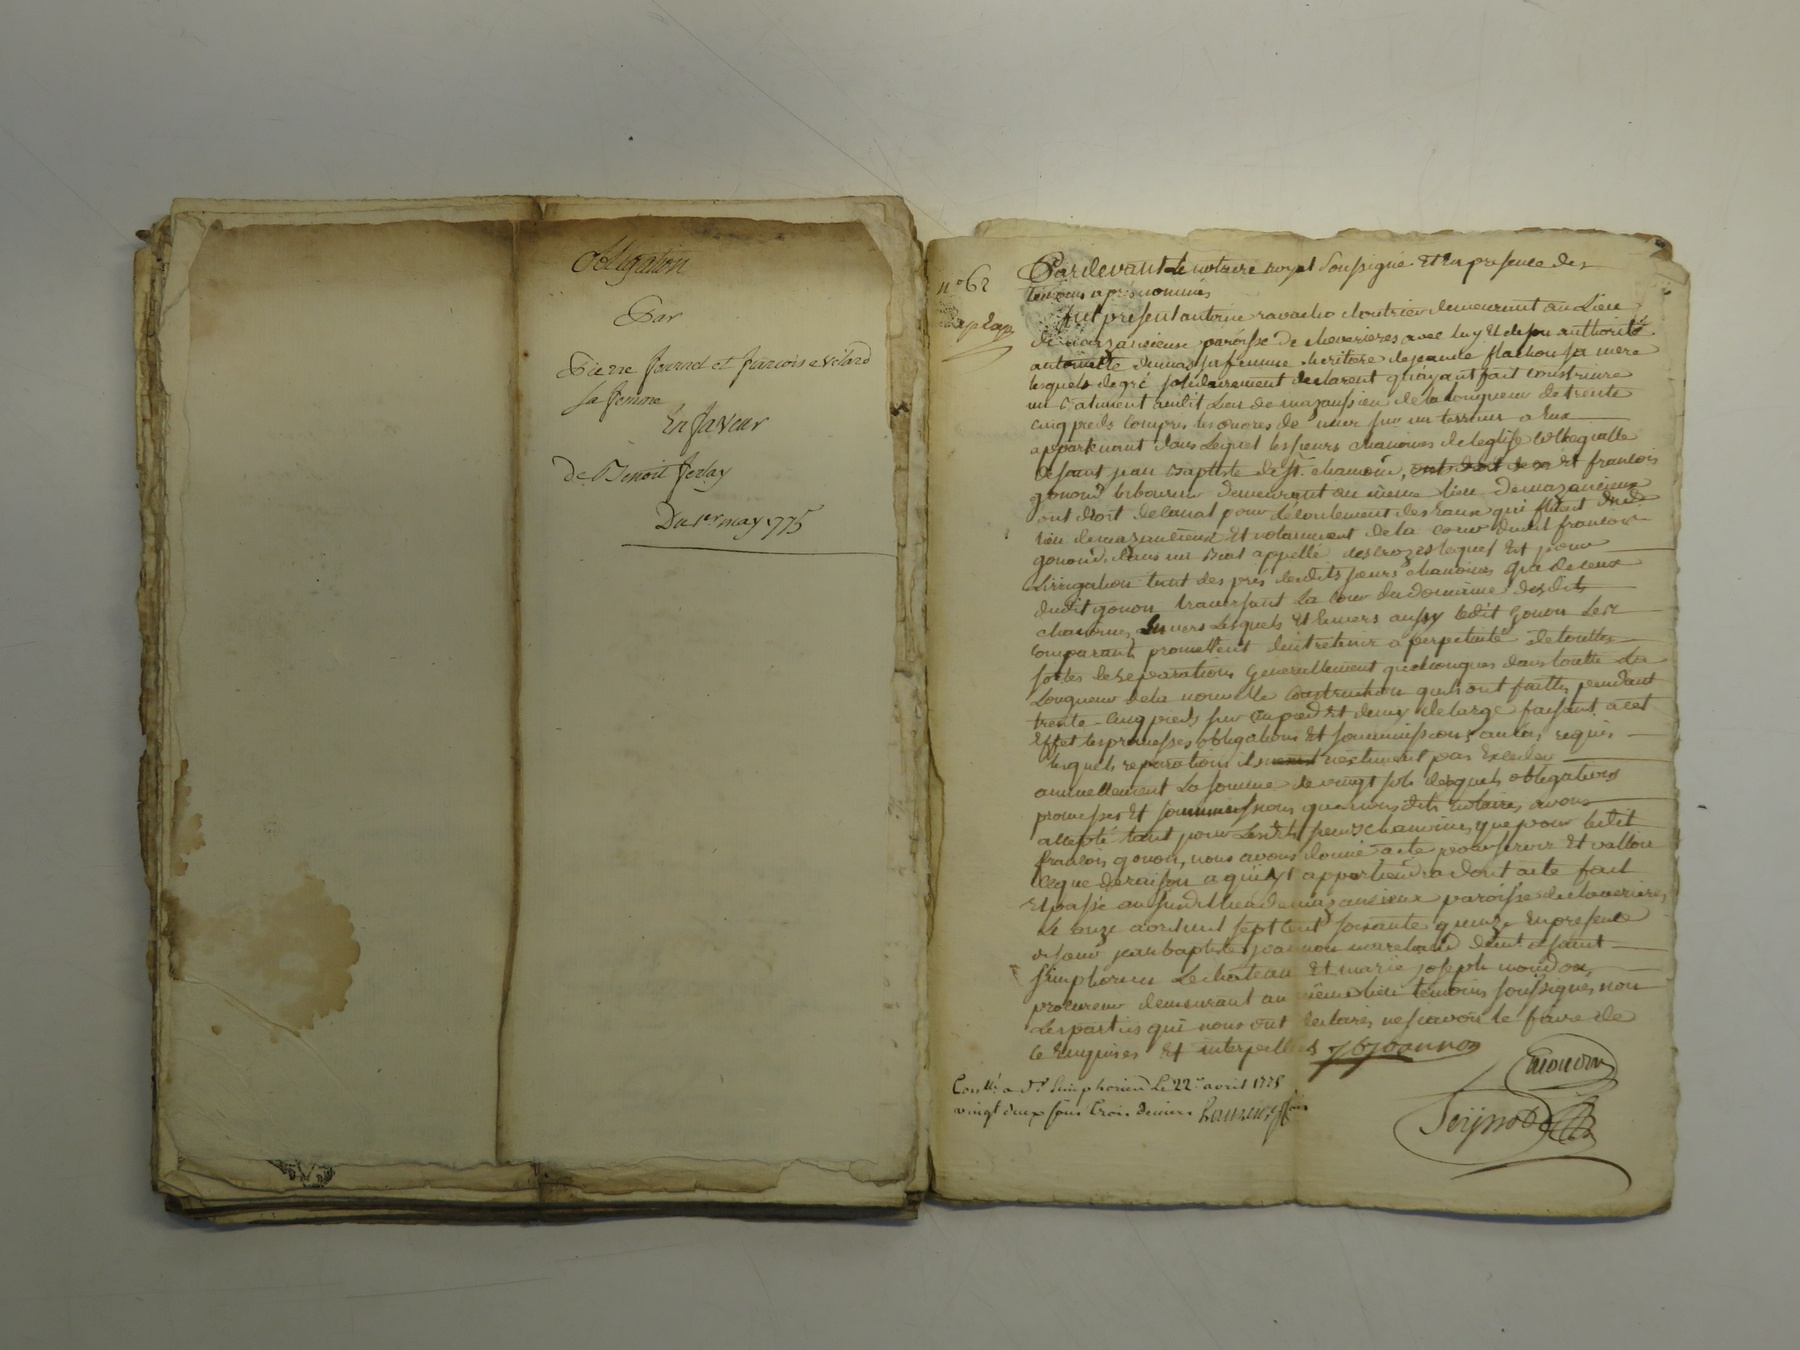 Obligation
Par
Pierre fournel et francois
sa femme
En faveur
De Benoit ferlay
Du 1er may 1775
n° 62
Pardevant Le notaire royal Soussigné Et En presence des
temoins apres nommés
fut présent antoine ravachol cloutrier demeurant au Lieu
de mazancieux paroisse de cheverieres avec luy Et de son authorité
antoinette dumas sa femme heritiere de jeanne flachon sa mere
lesquels de gré solidairement declarent qu'ayant fait construire
un batiment audit Lieu de mazansieu de la longueur de trente
cinq pieds compris les onvres de mur sur un terrein a Eux
appartenant dans Lequel les sieurs chanoines de leglise collegialle
de saint jean Baptiste de St. chamond, ont droit de Et francois
gonond laboureur demeurant au même lieu de mazancieux
ont droit de canal pour lecoulement des Eaux qui fluent dud
lieu de mazancieux Et notamment de la cour dudit francois
gonond, dans un Biat appellé des crozes lequel Est pour
Lirrigation tant des prés desdits sieurs chanoines que de ceux
dudit gonon traversant La cour du domaine desdits
chanoines, Envers Lesquels Et Envers aussy ledit gonon Les
comparants promettent dentretenir a perpetuité de touttes
sortes de reparations Generallement quelconques dans toutte La
Longueur de la nouvelle construction quils ont faitte, pendant
trente-cinq pieds sur un pied Et demy de large faisant a cet
Effet les promesses obligations Et soummissions au cas requis
lesquels reparations ils n'estiment pas Exceder
annuellement La somme de vingt sols desquels obligations
promesses Et soummissions, que nous dits notaire, avons
accepté tant pour Lesdits sieurs chanoines, que pour ledit
francois gonon, nous avons donné acte pour servir Et valloir
ce que de raison a qui il appartiendra dont acte fait
Et passé au susdit lieu de mazansieux paroisse de cheverieres,
Le onze avril mil sept cent soixante quinze En presence
de sieur jean baptiste jeannon marchand dudit saint
simphorien Le chateau Et marie joseph
procureur demeurant au même lieu temoins soussignés, non
Les parties qui nous ont declarés ne scavoir le faire de
ce Enquises Et interpellées J b Jeannon
Con.llé a St. simphorien Le 22e avril 1775
vingt deux sous trois deniers